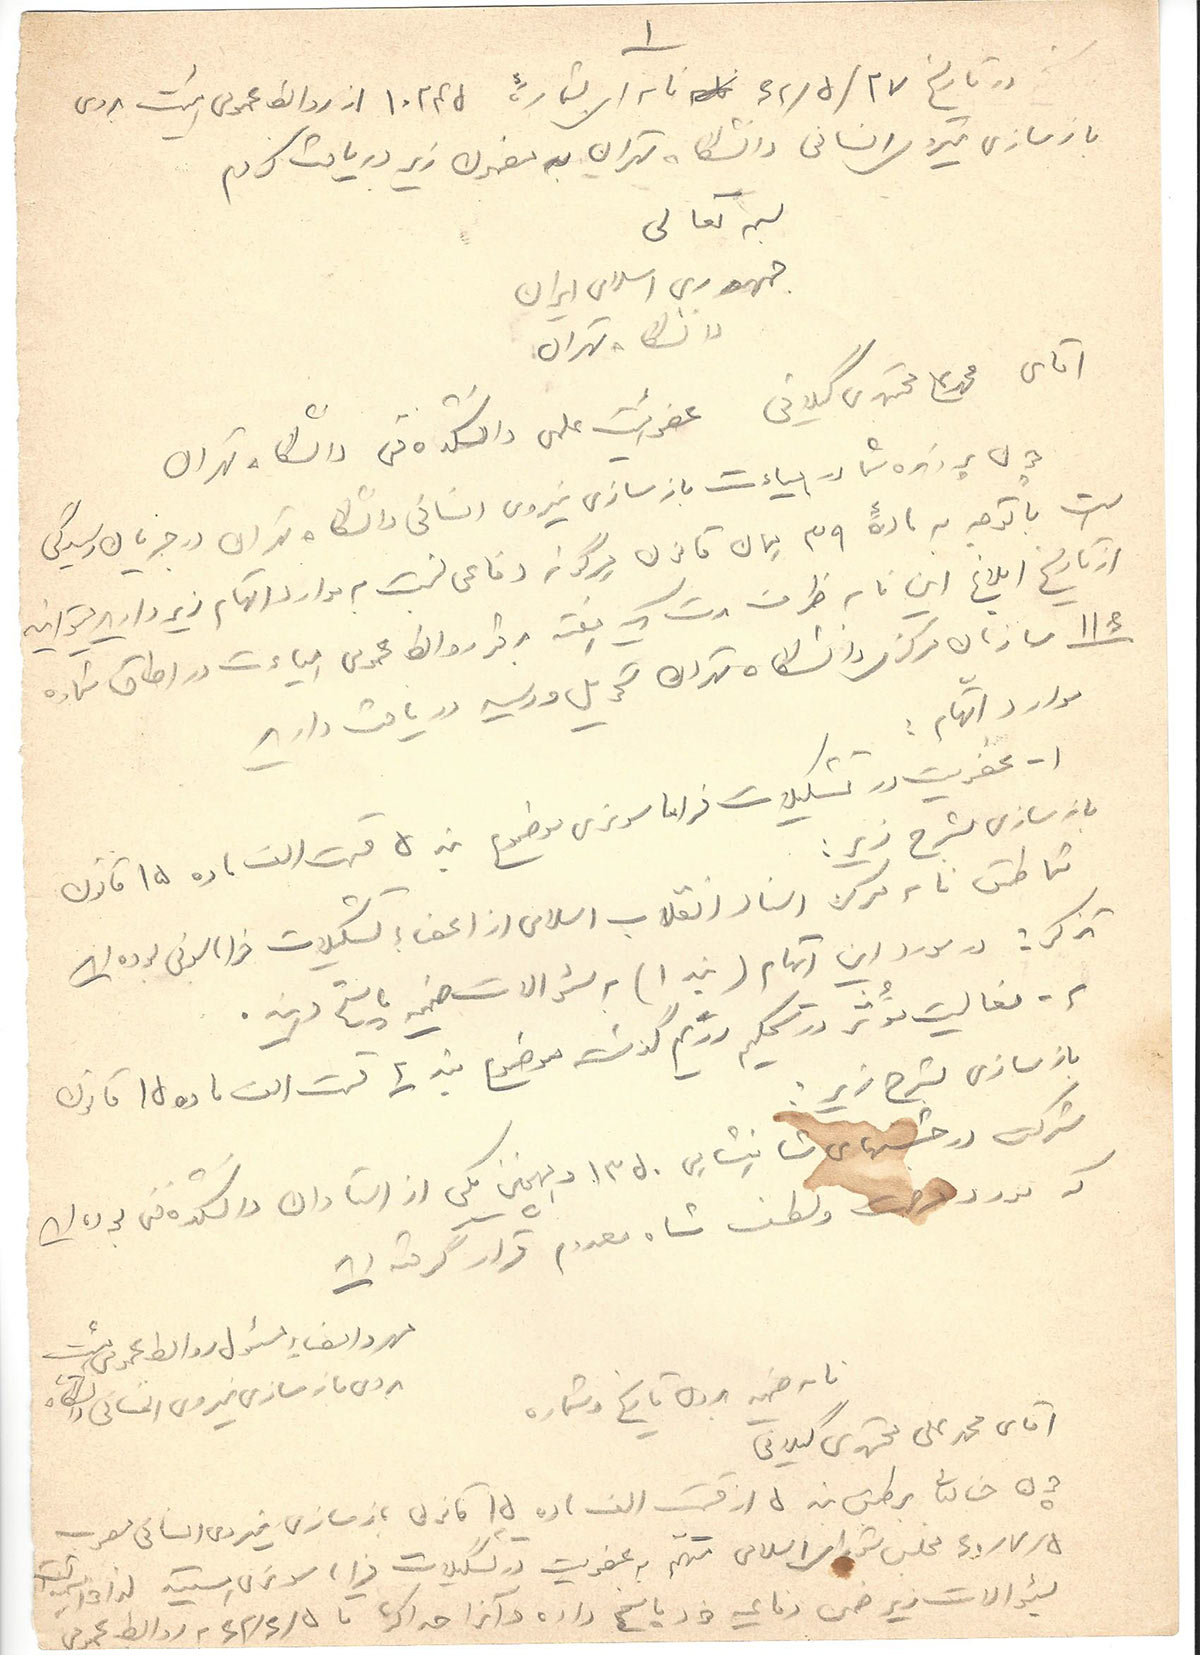 ۱
در تاریخ ۶۲/۵/۲۷ نامه ای بشمارهٔ ۱۰۲۴۵ از روابط عمومی هیئت بدوی
بازسازی نیروی انسانی دانشگاه تهران به مضمون زیر دریافت کردم
بسمه تعالی
جمهوری اسلامی ایران
دانشگاه تهران
آقای محمدعلی مجتهدی گیلانی عضو هیئت علمی دانشکده فنی دانشگاه تهران
چون پرونده شما در هیات بازسازی نیروی انسانی دانشگاه تهران در جریان رسیدگی
است با توجه به مادهٔ ۳۹ همان قانون هرگونه دفاعی نسبت به موارد اتهام زیر دارید میتوانید
از تاریخ ابلاغ این نامه ظرف مدت یک هفته به دفتر روابط عمومی هیات در اطاق شماره
۱۱۶ سازمان مرکزی دانشگاه تهران تحویل و رسید دریافت دارید
موارد اتهام :
۱- عضویت در تشکیلات فراماسونری موضوع بند ۵ قسمت الف ماده ۱۵ قانون
بازسازی بشرح زیر :
شما طبق نامه مرکز اسناد انقلاب اسلامی از اعضاء تشکیلات فراماسونی بوده اید
تذکر : در مورد این اتهام (بند ۱) به سئوالات ضمیمه پاسخ دهید .
۲- فعالیت مؤثر در تحکیم رژیم گذشته موضوع بند ۴ قسمت الف ماده ۱۵ قانون
بازسازی بشرح زیر :
شرکت در جشنهای شاهنشاهی ۱۳۵۰ و همچنین یکی از استادان دانشکده فنی بوده اید
که مورد مرحمت و لطف شاه معدوم قرار گرفته اید
مهر و امضاء مسئول روابط عمومی هیئت
بدوی بازسازی نیروی انسانی دانشگاه
نامه ضمیمه بدون تاریخ و شماره
آقای محمد علی مجتهدی گیلانی
چون جنابعالی برطبق بند ۵ از قسمت الف ماده ۱۵ قانون بازسازی نیروی انسانی مصوب
۶۰/۷/۵ مجلس شورای اسلامی متهم به عضویت در تشکیلات فراماسونری هستید لذا
بسئوالات زیر ضمن دفاعیه خود پاسخ داده و آنرا حداکثر تا ۶۲/۶/۵ به روابط عمومی